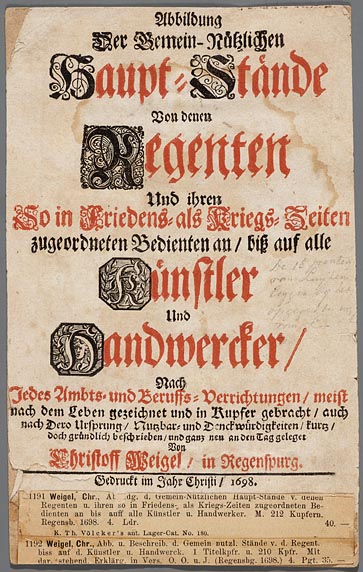 Abbildung
Der Gemein-Nützlichen
Haupt-Stände
Von denen
Regenten
Und ihren
So in Friedens- als Kriegs-Zeiten
zugeordneten Bedienten an / biß auf alle
Künstler
Und
Handwercker /
Nach
Jedes Ambts- und Beruffs-Verrichtungen / meist
nach dem Leben gezeichnet und in Kupfer gebracht / auch
nach Dero Ursprung / Nutzbar- und Denckwürdigkeiten / kurtz /
doch gründlich beschrieben / und ganz neu an den Tag geleget
Von
Christoff Weigel / in Regenspurg.
Gedruckt im Jahr Christi / 1698.
1191 Weigel, Chr., Ab dg. d. Gemein-Nützlichen Haupt-Stände v. denen
Regenten u. ihren so in Friedens-, als Kriegs-Zeiten zugeordneten Be-
dienten an bis auff alle Künstler u. Handwerker. M. 212 Kupfern.
Regensb. 1698. 4. Ldr. 40.—
K. Th. Völcker's ant. Lager-Cat. No. 180.
1192 Weigel, Chr., Abb. u. Beschreib. d. Gemein nutzl. Stände v. d. Regent.
biss auf d. Künstler u. Handwerck. 1 Titelkpf. u. 210 Kpf. Mit
dar. stehend. Erklärg. in Vers. O. O. u. J. (Regensbg. 1698.) 4. Pgt. 35.—